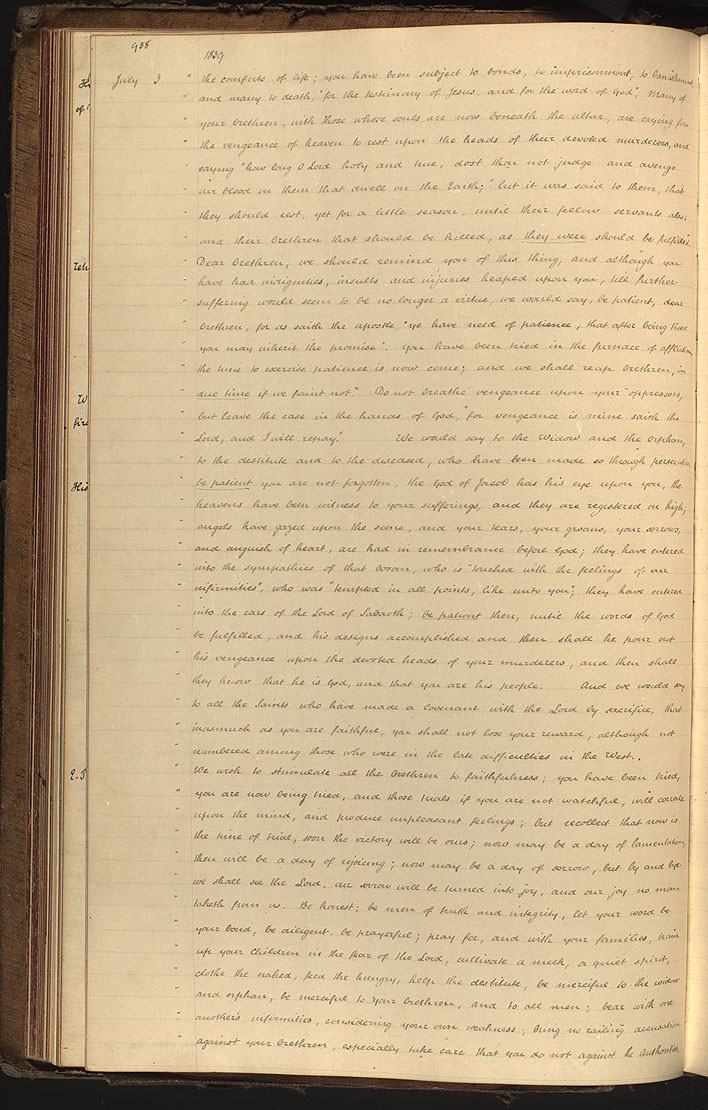 958
1839
July 3 " the comforts of life; you have been subject to bonds, to imprisonment, to banishment
" and many to death, "for the testimony of Jesus, and for the word of God". Many of
" your brethren, with those whose souls are now beneath the altar, are crying for
" the vengeance of heaven to rest upon the heads of their devoted murderers, and
" saying "how long O Lord holy and true, dost thou not judge and avenge
" our blood on them that dwell on the Earth;" but it was said to them, that
" they should rest, yet for a little season, until their fellow servants also;
" and their brethren that should be killed, as they were should be fulfilled"
" Dear brethren, we should remind you of this thing, and although you
" have had indignities, insults and injuries heaped upon you, till further
" suffering would seem to be no longer a virtue, we would say, be patient, dear
" brethren, for as saith the apostle, "ye have need of patience, that after being tried
" you may inherit the promise". You have been tried in the furnace of affliction
" the time to exercise patience is now come; and we shall reap brethren, in
" due time if we faint not." Do not breathe vengeance upon your oppressors,
" but leave the case in the hands of God, "for vengeance is mine saith the
" Lord, and I will repay." We would say to the Widow and the Orphan,
" to the destitute and to the diseased, who have been made so through persecution
" be patient you are not forgotten, the God of Jacob has his eye upon you, the
" heavens have been witness to your sufferings, and they are registered on high;
" angels have gazed upon the scene, and your tears, your groans, your sorrows,
" and anguish of heart, are had in remembrance before God; they have entered
" into the sympathies of that bosom, who is "touched with the feelings of our
" infirmities", who was "tempted in all points, like unto you"; they have entered
" into the ears of the Lord of Sabaoth; be patient then, until the words of God
" be fulfilled, and his designs accomplished and then shall he pour out
" his vengeance upon the devoted heads of your murderers, and then shall
" they know that he is God, and that you are his people. And we would say
" to all the Saints who have made a covenant with the Lord by sacrifice, that
" inasmuch as you are faithful, you shall not lose your reward, although not
" numbered among those who were in the late difficulties in the West..
" We wish to stimulate all the brethren to faithfulness; you have been tried,
" you are now being tried, and those trials if you are not watchful, will corrode
" upon the mind, and produce unpleasant feelings; but recollect that now is
" the time of trial, soon the victory will be ours; now may be a day of lamentation,
" then will be a day of rejoicing; now may be a day of sorrow, but by and bye
" we shall see the Lord, our sorrow will be turned into joy, and our joy no man
" taketh from us. Be honest; be men of truth and integrity, let your word be
" your bond, be diligent, be prayerful; pray for, and with your families, train
" up your children in the fear of the Lord, cultivate a meek, a quiet spirit,
" clothe the naked, feed the hungry, help the destitute, be merciful to the widow
" and orphan, be merciful to your brethren, and to all men; bear with one
" another's infirmities, considering your own weakness; bring no railing accusation
" against your brethren, especially take care that you do not against the authorities,